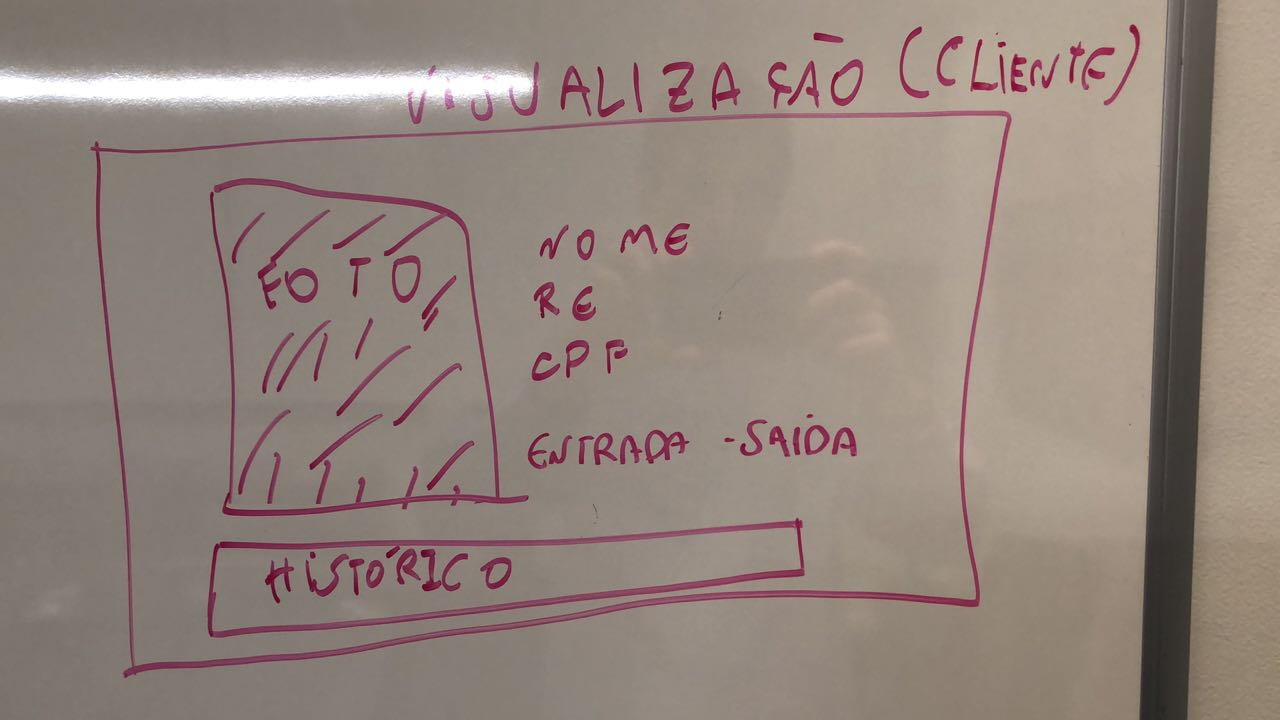 VISUALIZAÇÃO (CLIENTE)
FOTO
NOME
RE
CPF
ENTRADA - SAÍDA
HISTÓRICO